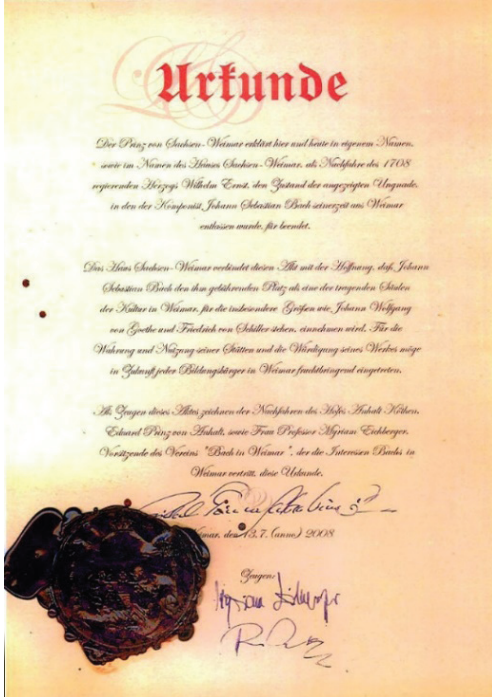 Urkunde
Der Prinz von Sachsen-Weimar erklärt hier und heute in eigenem Namen,
sowie im Namen des Hauses Sachsen-Weimar, als Nachfahre des 1708
regierenden Herzogs Wilhelm Ernst, den Zustand der angezeigten Ungnade,
in den der Komponist Johann Sebastian Bach seinerzeit aus Weimar
entlassen wurde, für beendet.
Das Haus Sachsen-Weimar verbindet diesen Akt mit der Hoffnung, daß Johann
Sebastian Bach den ihm gebührenden Platz als eine der tragenden Säulen
der Kultur in Weimar, für die insbesondere Größen wie Johann Wolfgang
von Goethe und Friedrich von Schiller stehen, einnehmen wird. Für die
Wahrung und Nutzung seiner Stätten und die Würdigung seines Werkes möge
in Zukunft jeder Bildungsbürger in Weimar fruchtbringend eingetreten.
Als Zeugen dieses Aktes zeichnen der Nachfahren des Hofes Anhalt Köthen,
Eduard Prinz von Anhalt, sowie Frau Professor Myriam Eichberger,
Vorsitzende des Vereins "Bach in Weimar", der die Interessen Bachs in
Weimar vertritt, diese Urkunde.
den 13.7. (anno) 2008
Zeugen: